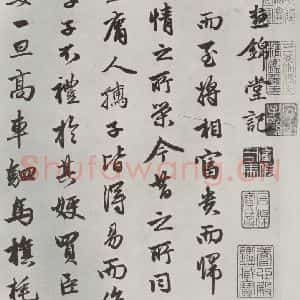 晝錦堂記
而至將相富貴而歸
情之所榮今昔之所同
庸人孺子皆得易而侮
季子不禮於其嫂買臣
一旦高車駟馬旗旄
Shufawang.Cn